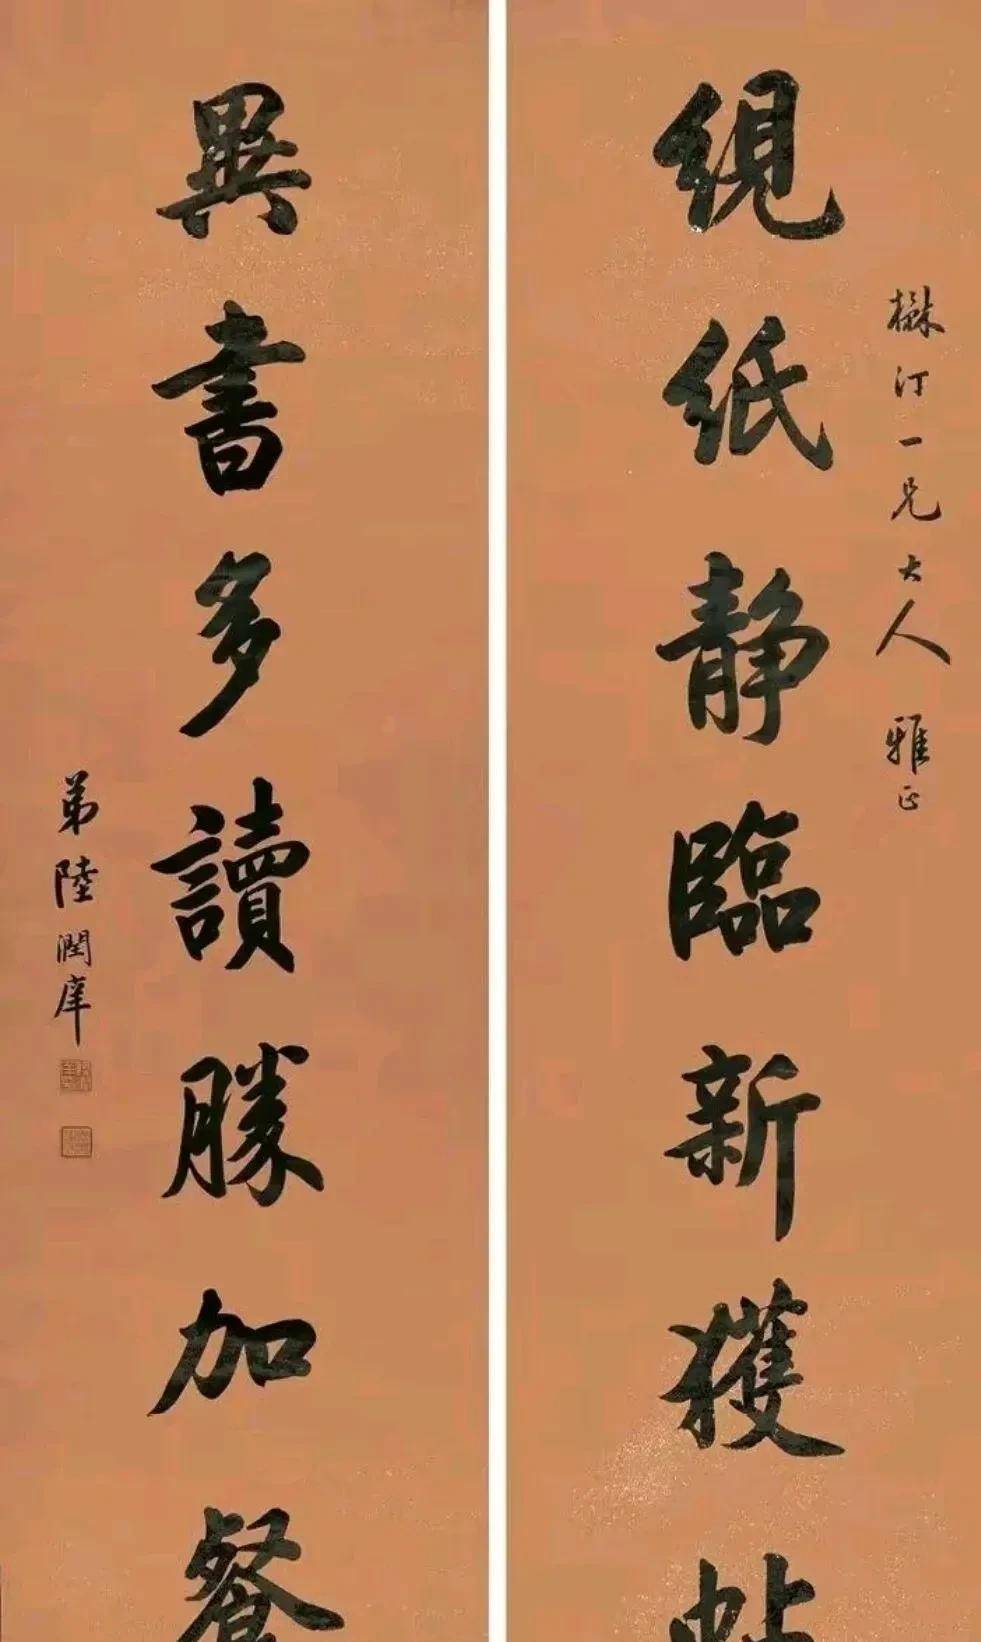 汀一兄大人 雅正
絸紙静臨新獲帖
異書多讀勝加餐
弟陸潤庠